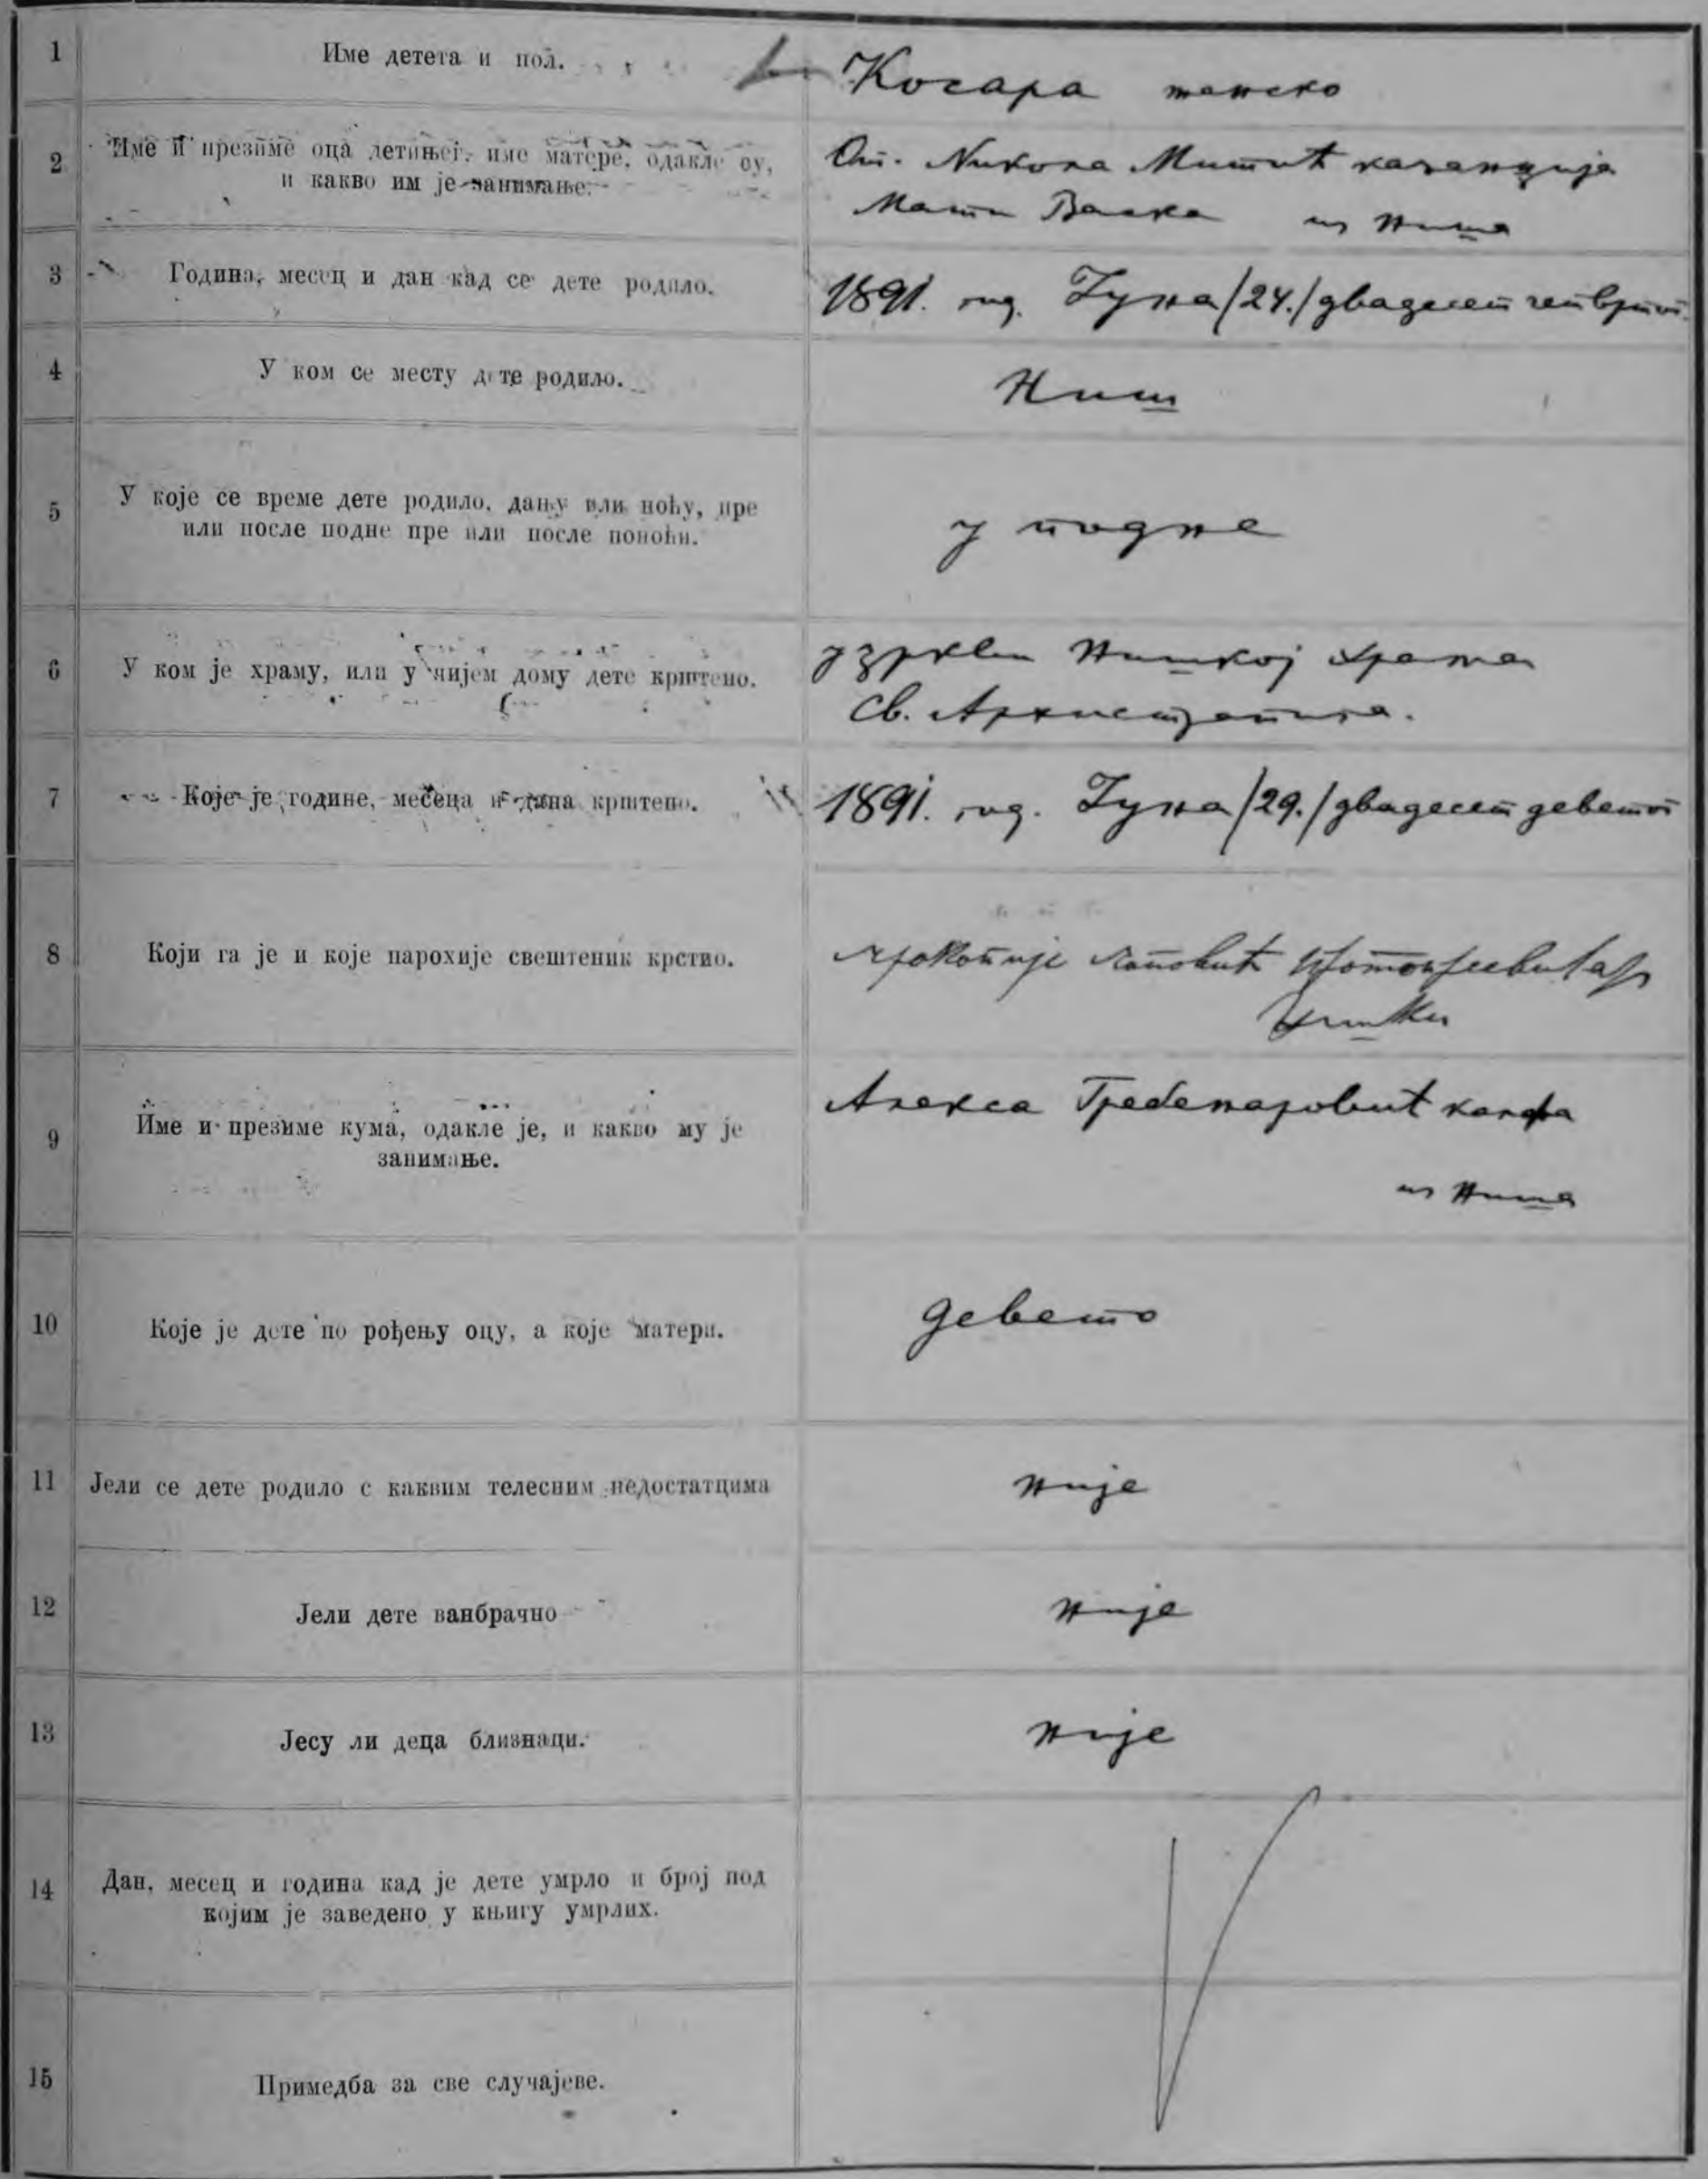 1
Име детета и пол.
Косара женско
2
Име и презиме оца детињег, име матере, одакле су,
и какво им је занимање.
От. Никола Митић казанџија
Мати Васка из Ниша
3
Година, месец и дан кад се дете родило.
1891. год. Јуна /24./ двадесет четвртог
4
У ком се месту дете родило.
Ниш
5
У које се време дете родило, дању или ноћу, пре
или после подне пре или после поноћи.
у подне
6
У ком је храму, или у чијем дому дете крштено.
у цркви Нишкој храма
св. Архистратига.
7
Које је године, месеца и дана крштено.
1891. год. Јуна /29./ двадесет деветог
8
Који га је и које парохије свештеник крстио.
Прокопије Поповић
Нишки
9
Име и презиме кума, одакле је, и какво му је
занимање.
Алекса калфа
из Ниша
10
Које је дете по рођењу оцу, а које матери.
девето
11
Јели се дете родило с каквим телесним недостатцима
није
12
Јели дете ванбрачно
није
13
Јесу ли деца близнаци.
није
14
Дан, месец и година кад је дете умрло и број под
којим је заведено у књигу умрлих.
15
Примедба за све случајеве.